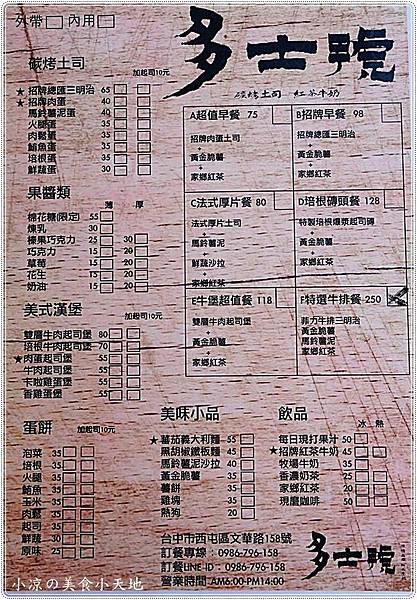 外帶 內用
多士號
碳烤土司 紅茶牛奶
碳烤土司 加起司10元
★招牌總匯三明治 65
★招牌肉蛋 40
馬鈴薯泥蛋 40
火腿蛋 30
肉鬆蛋 30
鮪魚蛋 30
培根蛋 30
鮮蔬蛋 30
果醬類 薄 厚
棉花糖(限定) 55
煉乳 30
榛果巧克力 25 30
巧克力 15 20
草莓 15 20
花生 15 20
奶油 15 20
美式漢堡 加起司10元
雙層牛肉起司堡 80
培根牛肉起司堡 70
★肉蛋起司堡 55
牛肉起司堡 55
卡啦雞蛋堡 55
香雞蛋堡 50
蛋餅 加起司10元
泡菜 35
培根 35
火腿 35
鮪魚 35
玉米 35
肉鬆 35
起司 35
鮮蔬 30
原味 25
A超值早餐 75
招牌肉蛋土司
+
黃金脆薯
+
家鄉紅茶
B招牌早餐 98
招牌總匯三明治
+
黃金脆薯
+
家鄉紅茶
C法式厚片餐 80
法式厚片土司
+
馬鈴薯泥
+
鮮蔬沙拉
+
家鄉紅茶
D培根磚頭餐 128
特製培根爆漿起司磚
+
黃金脆薯
+
家鄉紅茶
E牛堡超值餐 118
雙層牛肉起司堡
+
黃金脆薯
+
家鄉紅茶
F特選牛排餐 250
菲力牛排三明治
黃金脆薯
馬鈴薯泥
家鄉紅茶
美味小品
★蕃茄義大利麵 55
黑胡椒鐵板麵 45
馬鈴薯泥沙拉 40
黃金脆薯 35
薯餅 35
雞塊 35
熱狗 20
飲品 冰 熱
每日現打果汁 50
★招牌紅茶牛奶 45
牧場牛奶 35
香濃奶茶 25
家鄉紅茶 20
現磨咖啡 50
台中市西屯區文華路158號
訂餐專線：0986-796-158
訂餐LINE-ID：0986-796-158
營業時間 AM6:00-PM14:00
多士號
小凉の美食小天地